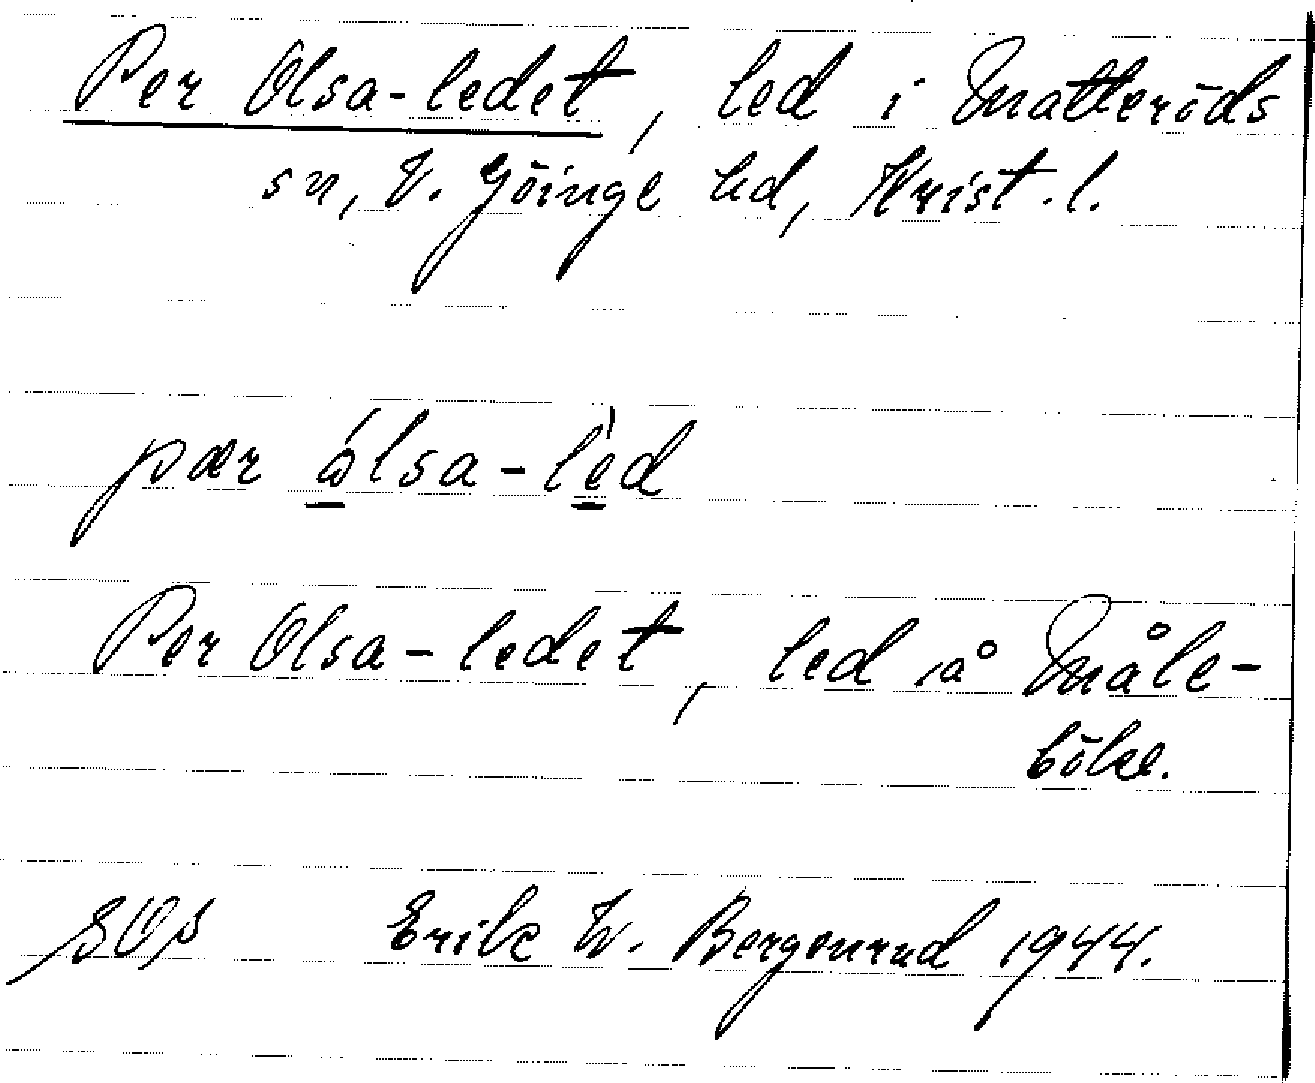 Per Olsa-ledet, led i Matteröds
sn, V. Göinge hd, Krist. l.
pær ólsa-lèd
Per Olsa-ledet, led å Måle-
böke.
SOS Erik W. Bergenrud 1944.